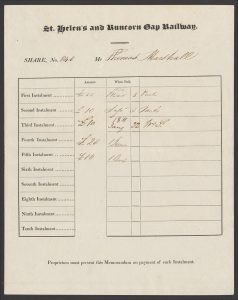 St. Helen's and Runcorn Gap Railway.
SHARE, No. Mr Thomas Marshall
Amount When Paid.
First Instalment
Second Instalment
Third Instalment
Fourth Instalment
Fifth Instalment
Sixth Instalment
Seventh Instalment
Eighth Instalment
Ninth Instalment
Tenth Instalment
Proprietors must present this Memorandum on payment of each Instalment.